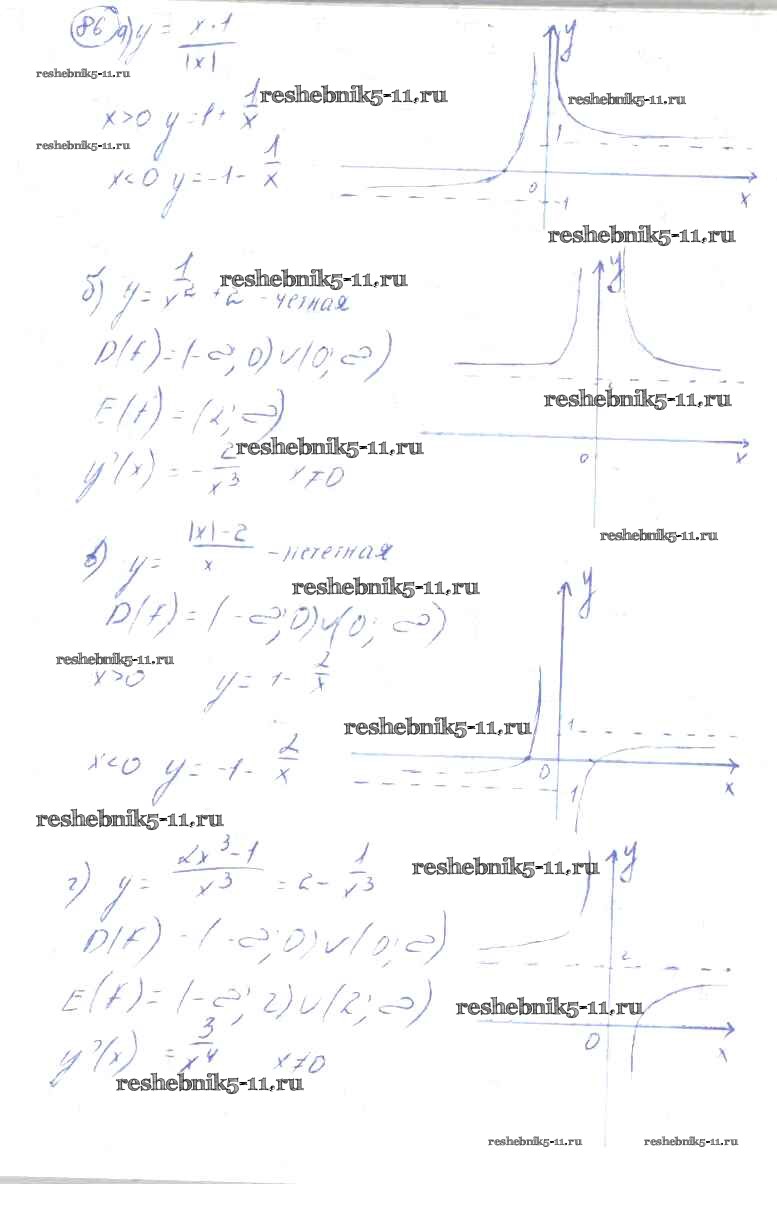 86 а) y = x·1 / |x|
reshebnik5-11.ru
x>0 y=1+ 1/x
reshebnik5-11.ru
reshebnik5-11.ru
reshebnik5-11.ru
x<0 y=-1- 1/x
y
1
0
x
-1
reshebnik5-11.ru
б) y= 1/x² +2 - четная
reshebnik5-11.ru
D(f)=(-∞; 0)∪(0; ∞)
E(f)=(2; ∞)
reshebnik5-11.ru
reshebnik5-11.ru
y'(x) = - 2/x³ x≠0
y
0
x
reshebnik5-11.ru
в) y= |x|-2 / x - нечетная
reshebnik5-11.ru
D(f)=(-∞; 0)∪(0; ∞)
reshebnik5-11.ru
x>0 y= 1- 2/x
reshebnik5-11.ru
x<0 y= -1- 2/x
y
1
0
x
1
reshebnik5-11.ru
г) y= 2x³-1 / x³ = 2- 1/x³
reshebnik5-11.ru
D(f) - (-∞; 0)∪(0; ∞)
E(f)=(-∞; 2)∪(2; ∞)
reshebnik5-11.ru
y'(x) = 3/x⁴ x≠0
reshebnik5-11.ru
y
2
0
x
reshebnik5-11.ru
reshebnik5-11.ru